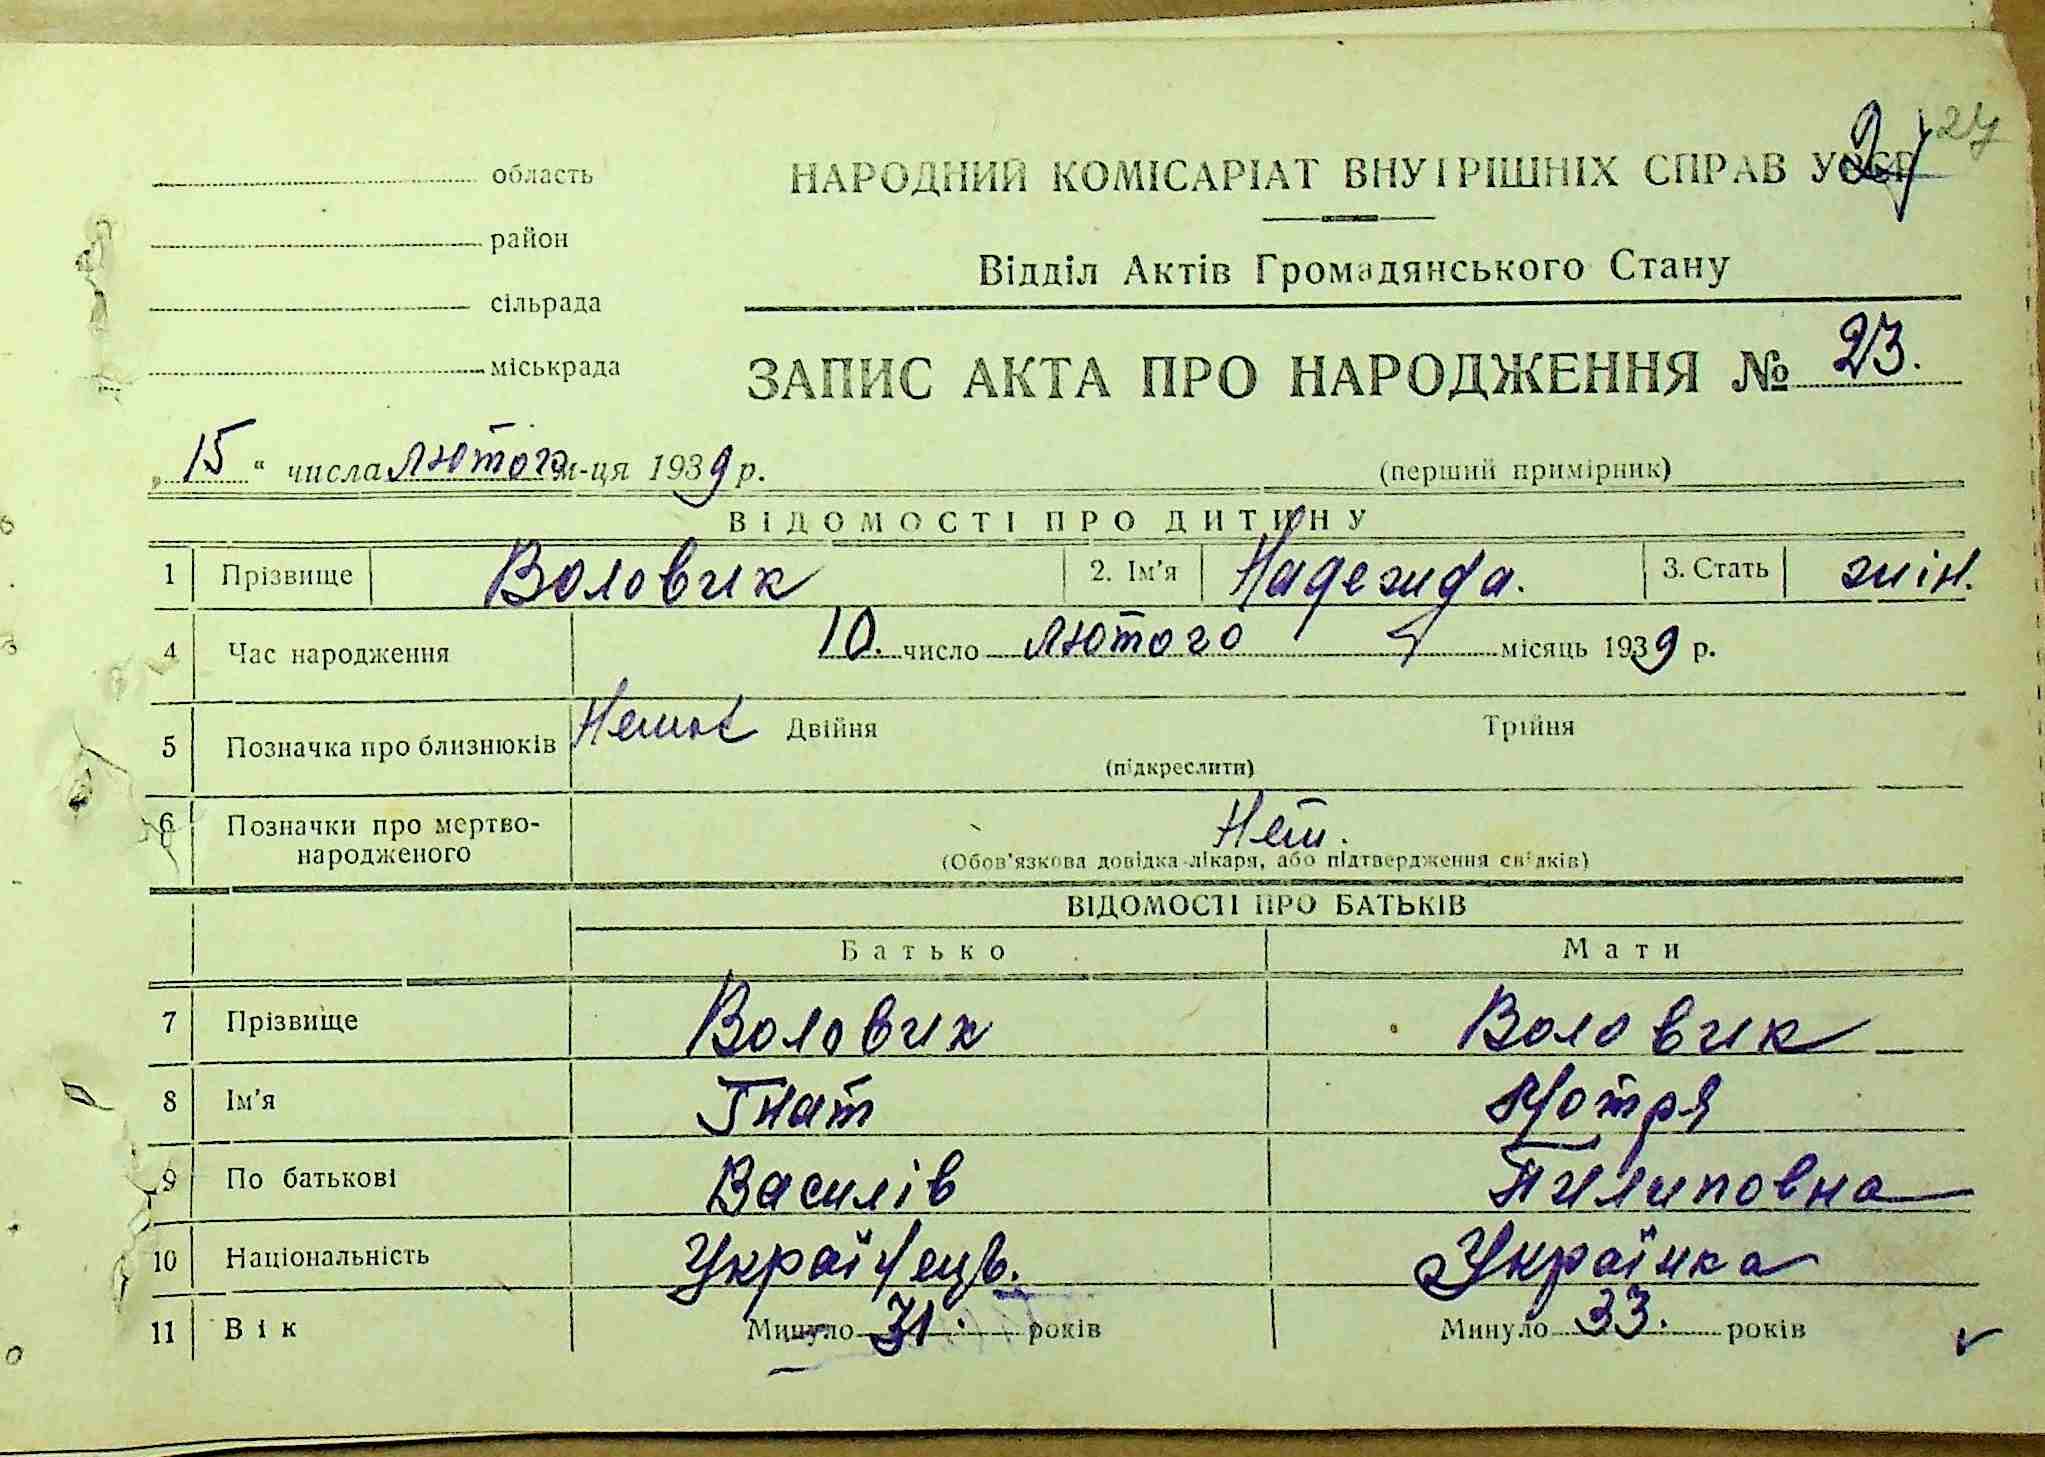 27
область
НАРОДНИЙ КОМІСАРІАТ ВНУТРІШНІХ СПРАВ УРСР
район
Відділ Актів Громадянського Стану
сільрада
міськрада
ЗАПИС АКТА ПРО НАРОДЖЕННЯ № 23.
„15“ числа лютого м-ця 1939 р. (перший примірник)
ВІДОМОСТІ ПРО ДИТИНУ
1 Прізвище Воловик 2. Ім'я Надежда. 3. Стать жін.
4 Час народження 10. число лютого місяць 1939 р.
5 Позначка про близнюків Двійня Трійня
(підкреслити)
6 Позначки про мертво-
народженого Нет.
(Обов'язкова довідка лікаря, або підтвердження свідків)
ВІДОМОСТІ ПРО БАТЬКІВ
Батько Мати
7 Прізвище Воловик Воловик
8 Ім'я Гнат Мотря
9 По батькові Василів Пилиповна
10 Національність Українець. Українка
11 Вік Минуло 31. років Минуло 33. років